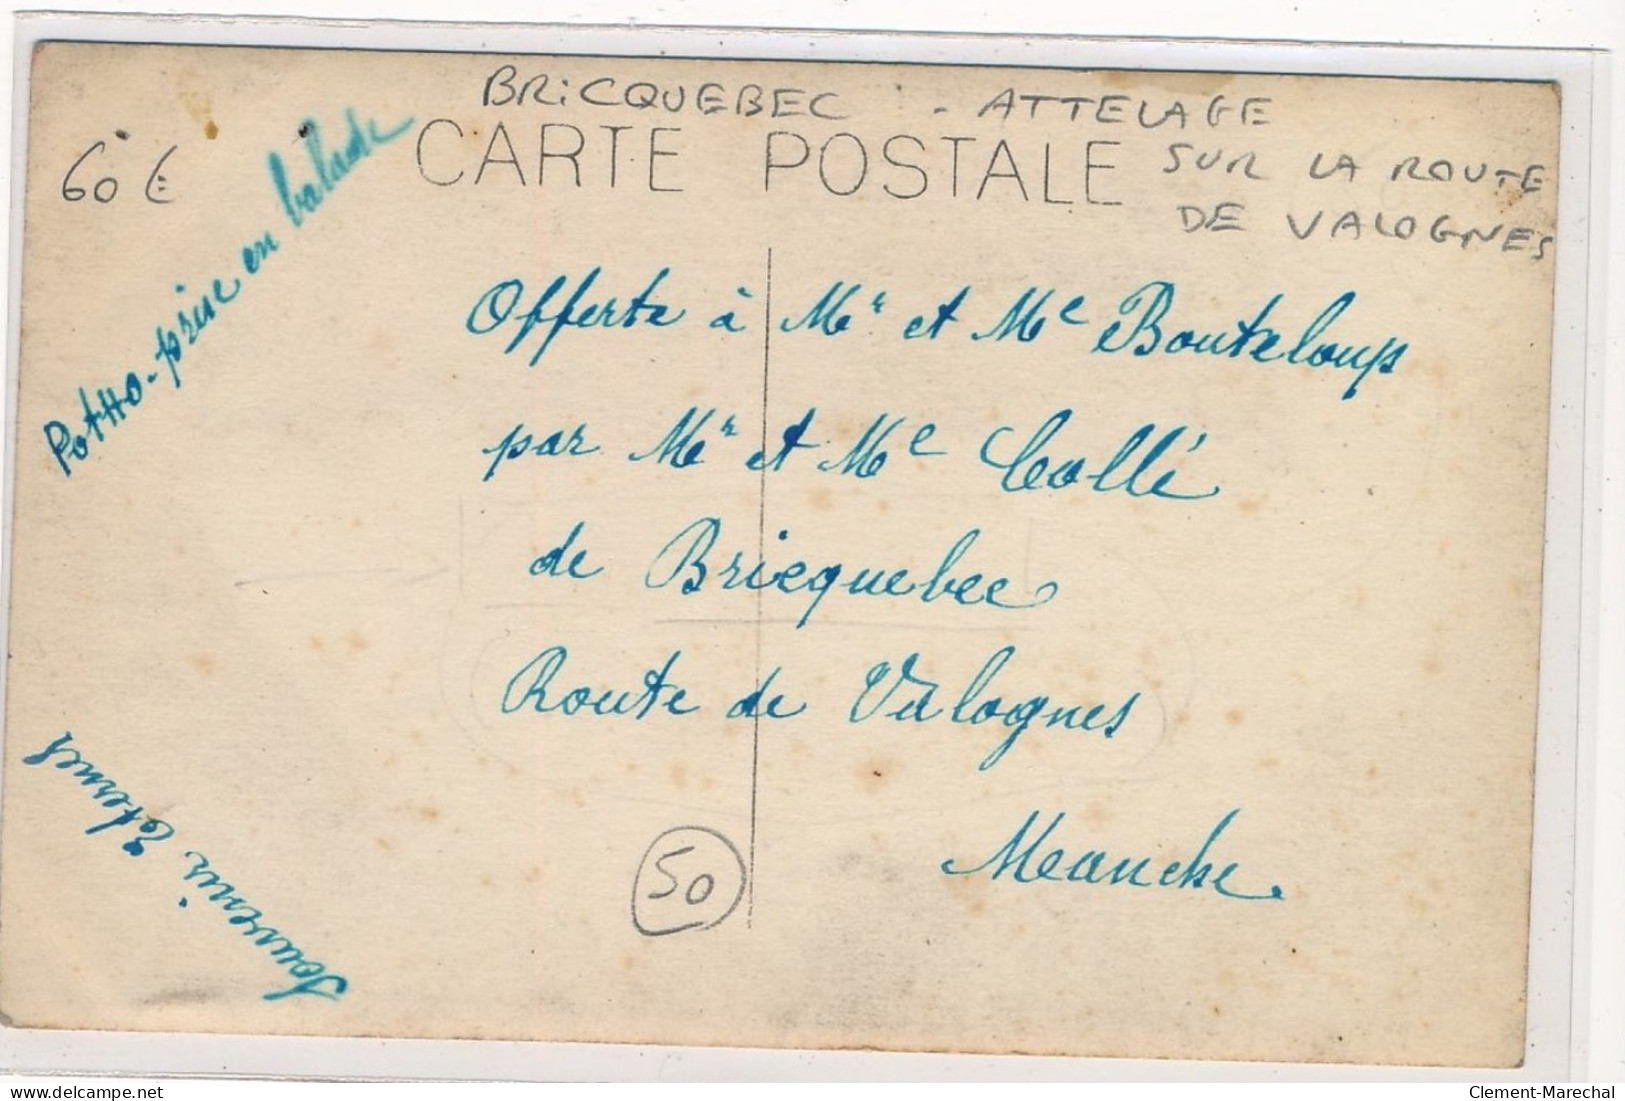 BRICQUEBEC - ATTELAGE
SUR LA ROUTE
DE VALOGNES
60 €
CARTE POSTALE
Potho-prise en balade
Offerte à Mr et Me Bouteloup
par Mr et Me Collé
de Bricquebec
Route de Valognes
Manche
Souvenir Eternel
50
Clement-Marechal